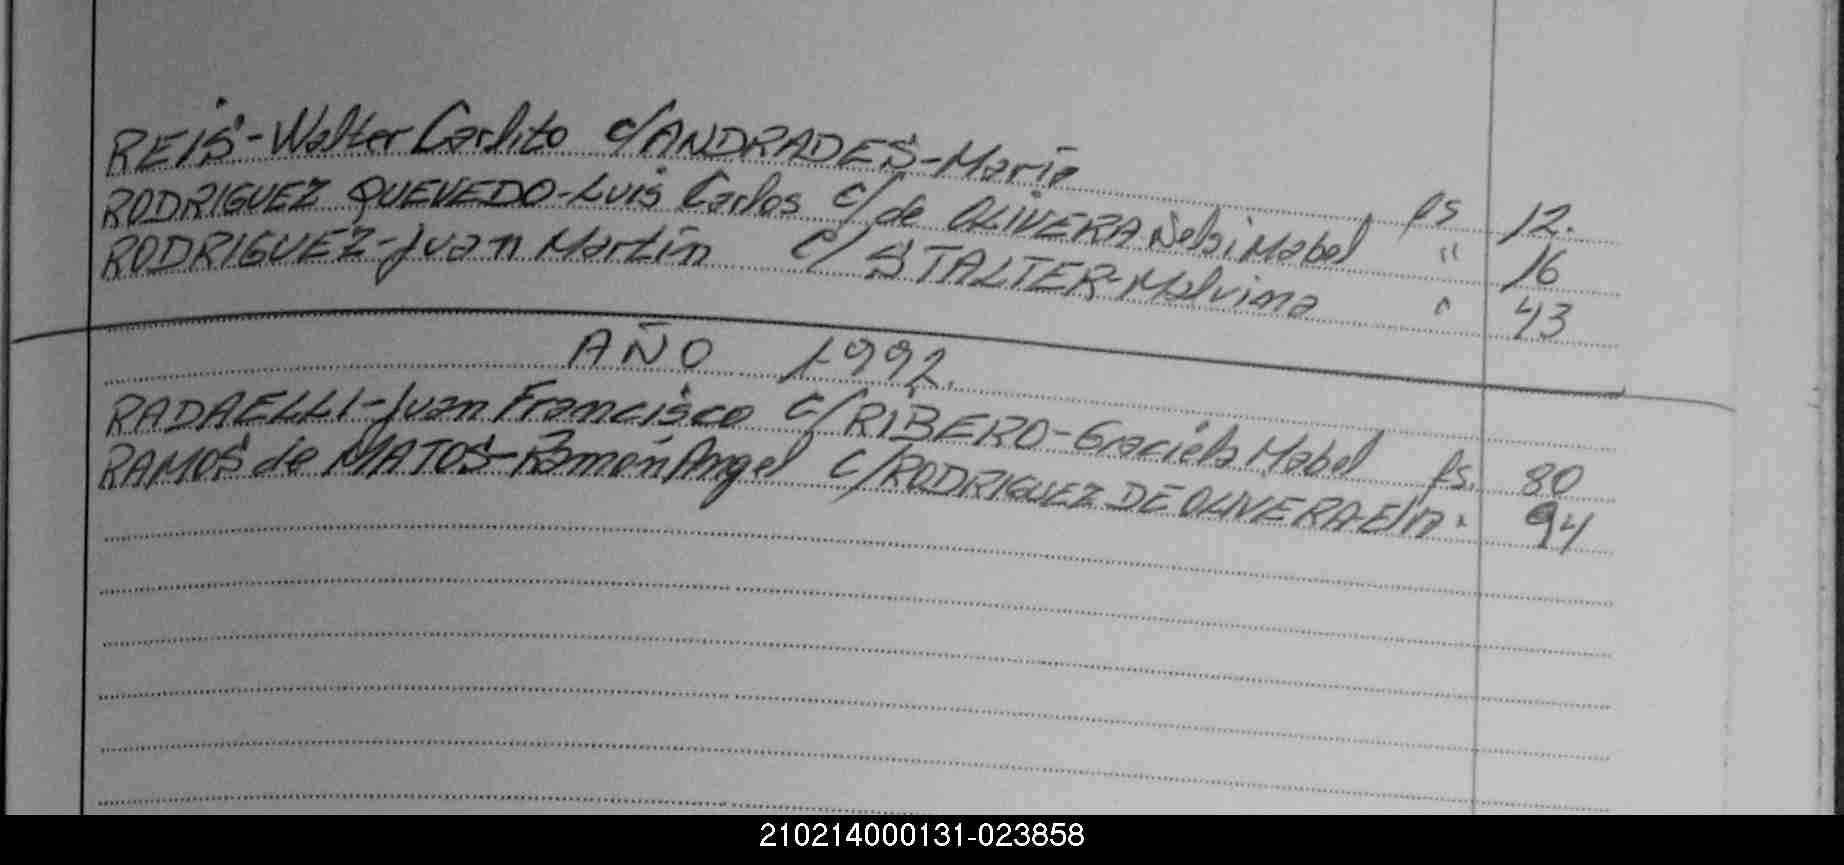 REIS-Walter Carlito c/ANDRADES-Maria fs 12.
RODRIGUEZ QUEVEDO-Luis Carlos c/de OLIVERA Nelsi Mabel " 16
RODRIGUEZ-Juan Martin c/ STALTER-Malvina " 43
AÑO 1992.
RADAELLI-Juan Francisco c/RIBERO-Graciela Mabel fs. 80
RAMOS de MATOS-Ramón Angel c/RODRIGUEZ DE OLIVERA-Elsa " 94
210214000131-023858